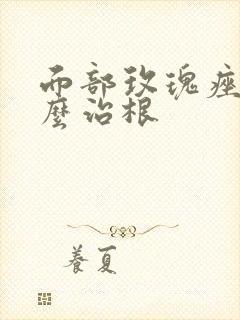 面部玫瑰痤
麼治根
養夏